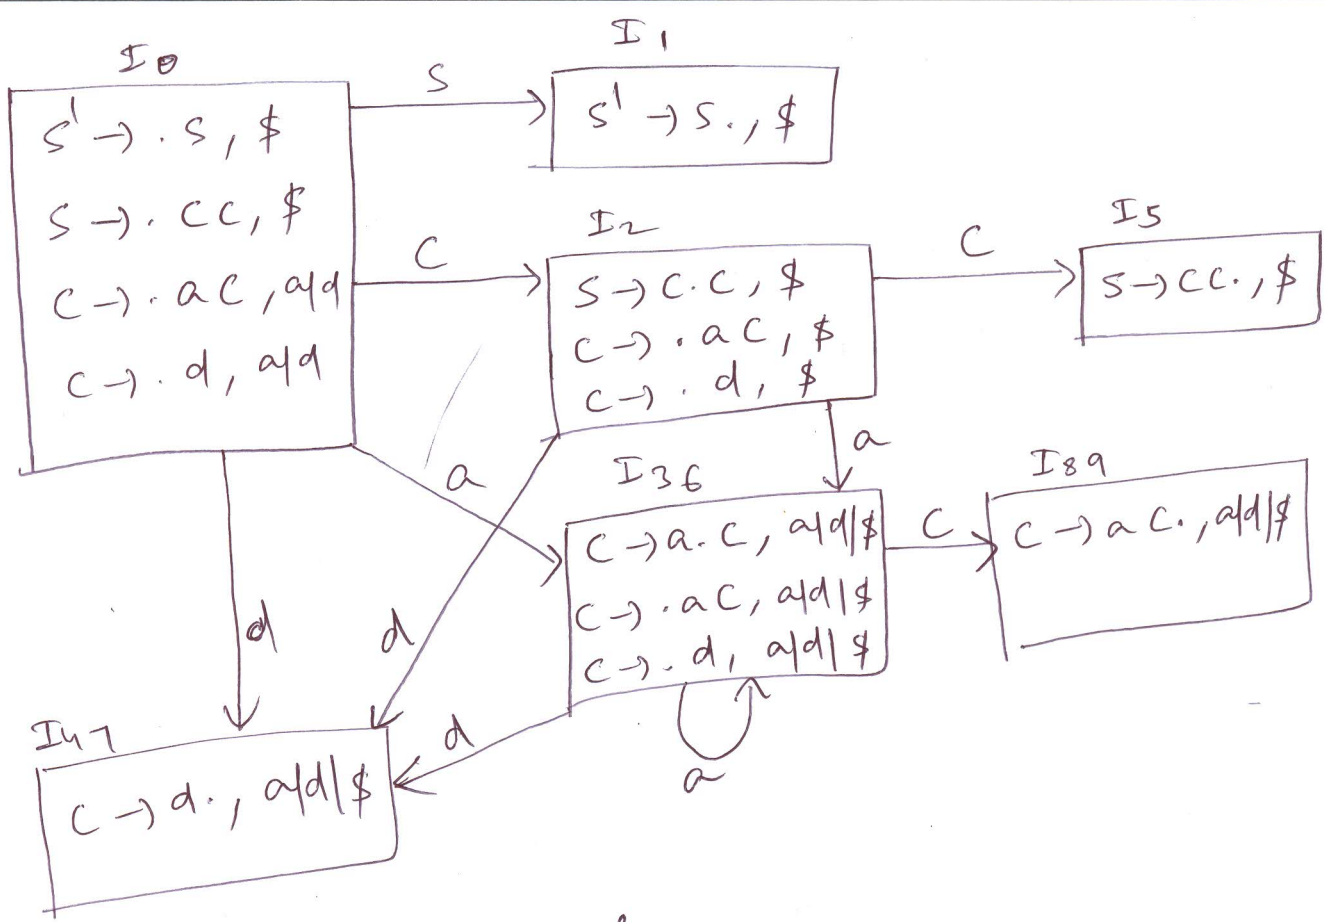 I0
S' → .S, $
S → .CC, $
C → .aC, a/d
C → .d, a/d
S
I1
S' → S., $
C
I2
S → C.C, $
C → .aC, $
C → .d, $
C
I5
S → CC., $
a
a
d
d
I36
C → a.C, a/d/$
C → .aC, a/d/$
C → .d, a/d/$
C
I89
C → aC., a/d/$
a
d
I47
C → d., a/d/$